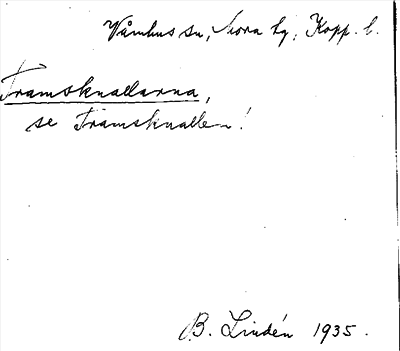 Våmhus sn, Mora tg, Kopp. l.
Tramsknallarna,
se Tramsknallen!
B. Lindén 1935.